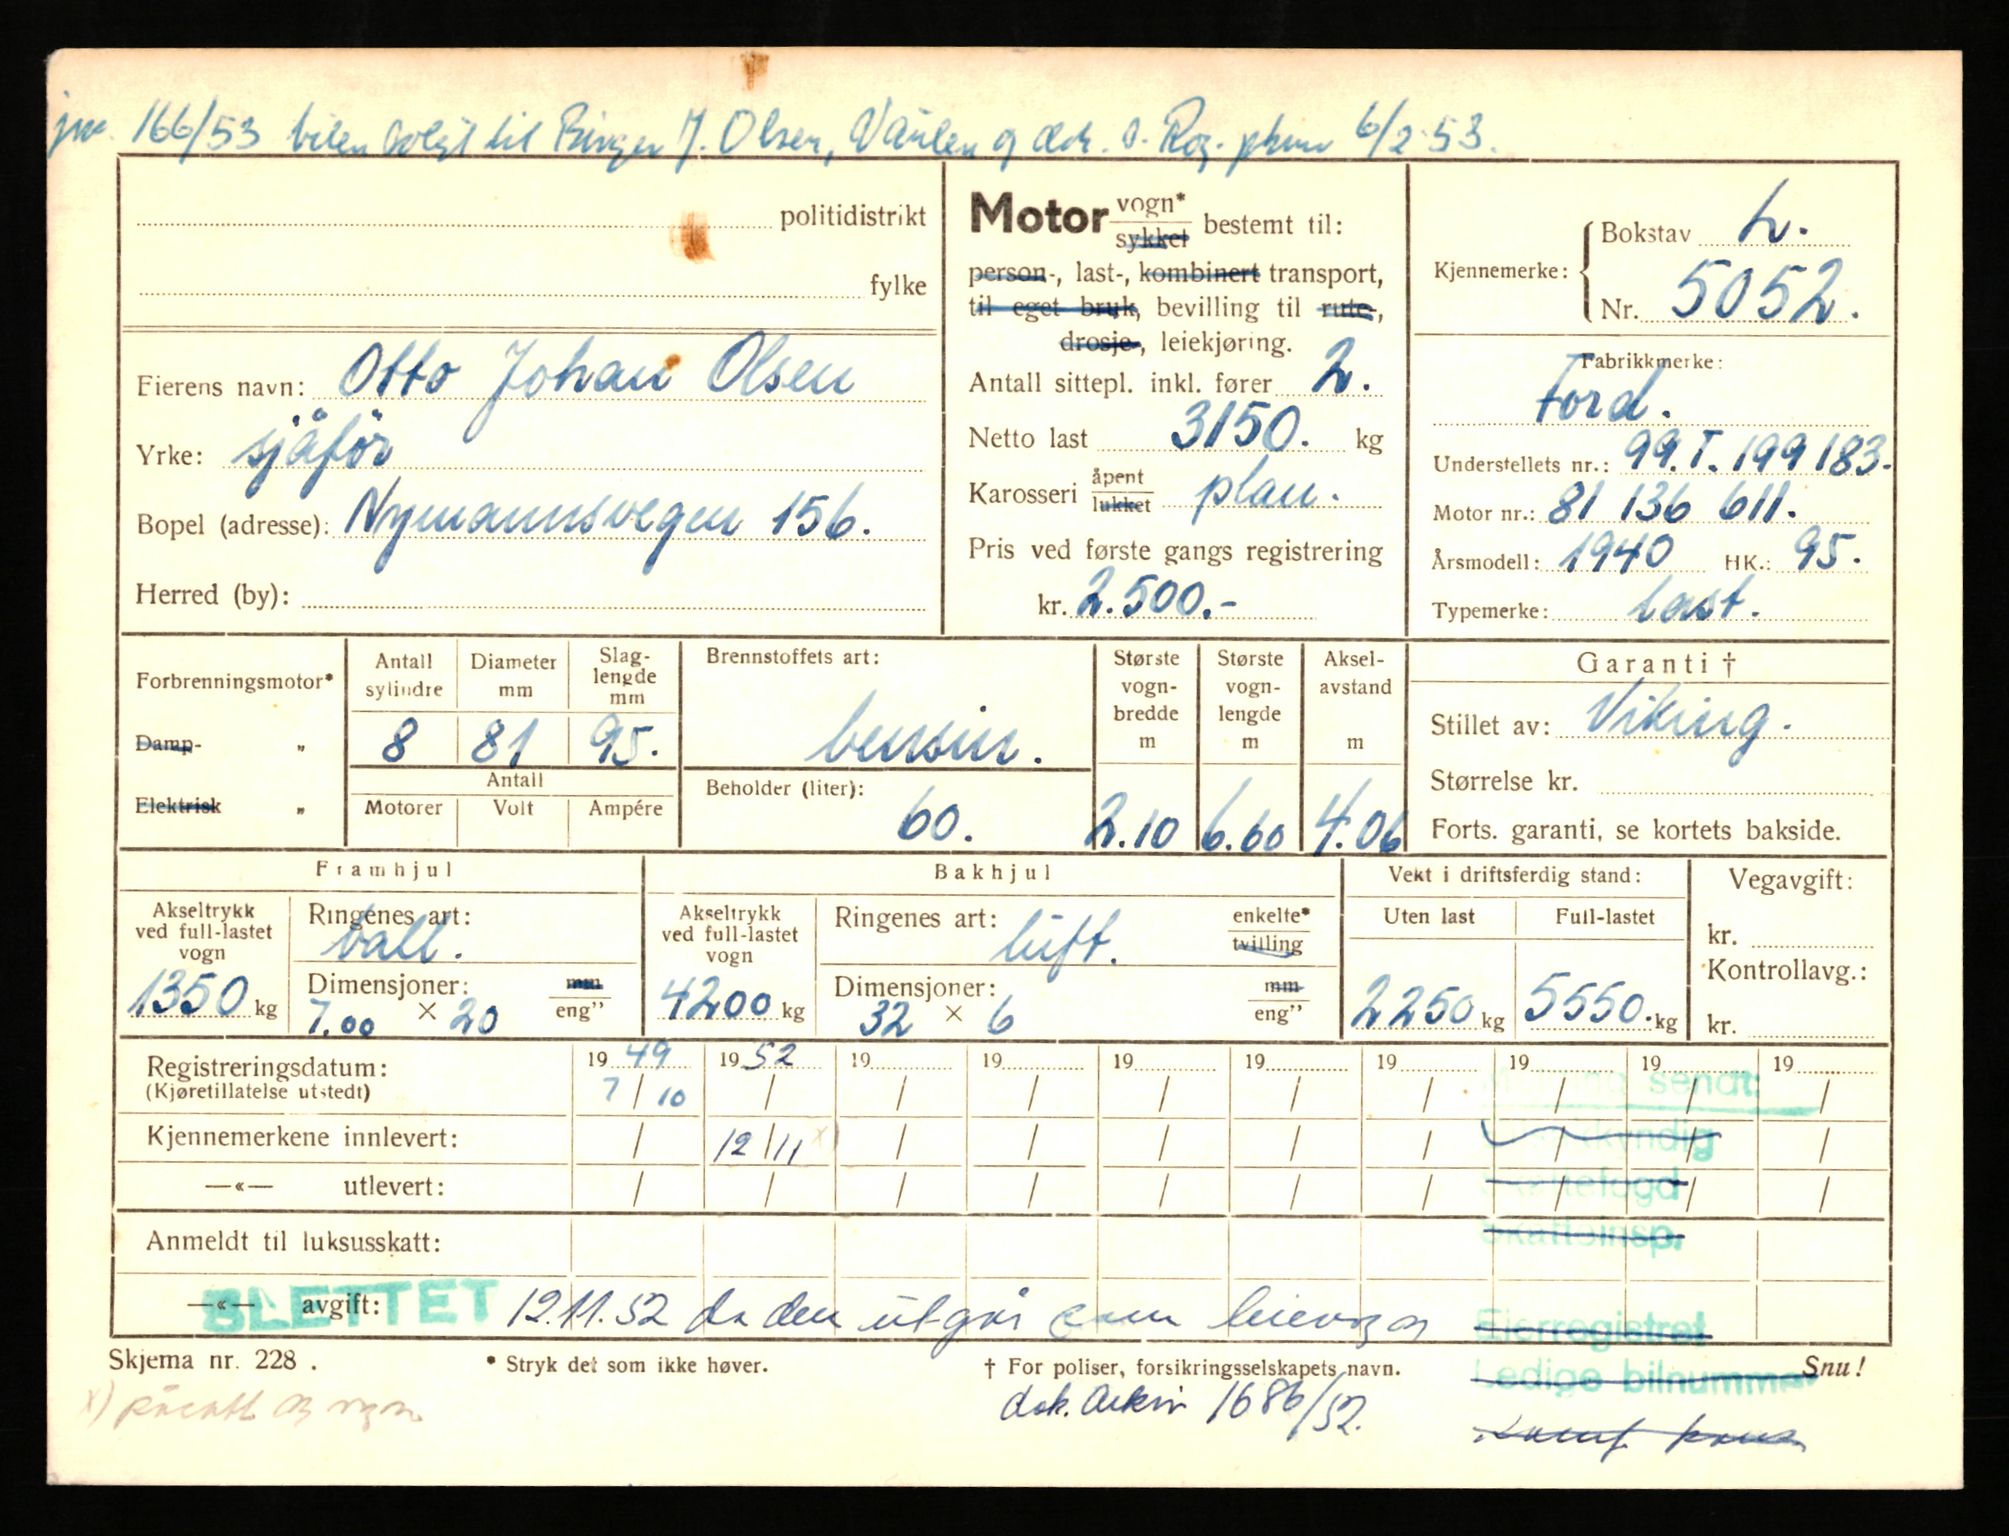 166/53 bilen solgt til Birger J. Olsen, Vaulen og dok. s. Rog. pkmr 6/2 53.
politidistrikt
fylke
Eierens navn: Otto Johan Olsen
Yrke: sjåför
Bopel (adresse): Nymannsvegen 156.
Herred (by):
Motor vogn* sykkel bestemt til:
person-, last-, kombinert transport,
til eget bruk, bevilling til rute-,
drosje-, leiekjøring.
Antall sittepl. inkl. fører 2.
Netto last 3150. kg
Karosseri åpent lukket plan.
Pris ved første gangs registrering
kr. 2.500.-
Kjennemerke: Bokstav L.
Nr. 5052.
Fabrikkmerke:
Ford.
Understellets nr.: 99.T.199183.
Motor nr.: 81 136 611.
Årsmodell: 1940 HK.: 95.
Typemerke: last.
Forbrenningsmotor*
Damp- „
Elektrisk „
Antall sylindre Diameter mm Slag-lengde mm
8 81 95.
Antall
Motorer Volt Ampére
Brennstoffets art:
bensin.
Beholder (liter):
60.
Største vogn-bredde m Største vogn-lengde m Aksel-avstand m
2.10 6.60 4.06
Garanti †
Stillet av: Viking.
Størrelse kr.
Forts. garanti, se kortets bakside.
Framhjul
Akseltrykk ved full-lastet vogn
1350 kg
Ringenes art:
ball.
Dimensjoner: mm eng”
7.00 × 20
Bakhjul
Akseltrykk ved full-lastet vogn
4200 kg
Ringenes art: luft. enkelte* tvilling
Dimensjoner: mm eng”
32 × 6
Vekt i driftsferdig stand:
Uten last Full-lastet
2250 kg 5550. kg
Vegavgift:
kr.
Kontrollavg.:
kr.
Registreringsdatum: 19 49 19 52 19 19 19 19 19 19 19 19
(Kjøretillatelse utstedt) 7/10 / / / / / / / / /
Kjennemerkene innlevert: / 12/11 x) / / / / / / / /
—«— utlevert: / / / / / / / / / /
Anmeldt til luksusskatt:
—«— avgift:
SLETTET 12.11.52 da den utgår som leievogn
sendt:
Eierregistret
Ledige bilnummer
Skjema nr. 228.
* Stryk det som ikke høver.
† For poliser, forsikringsselskapets navn.
Snu!
dok. arkiv 1686/52.